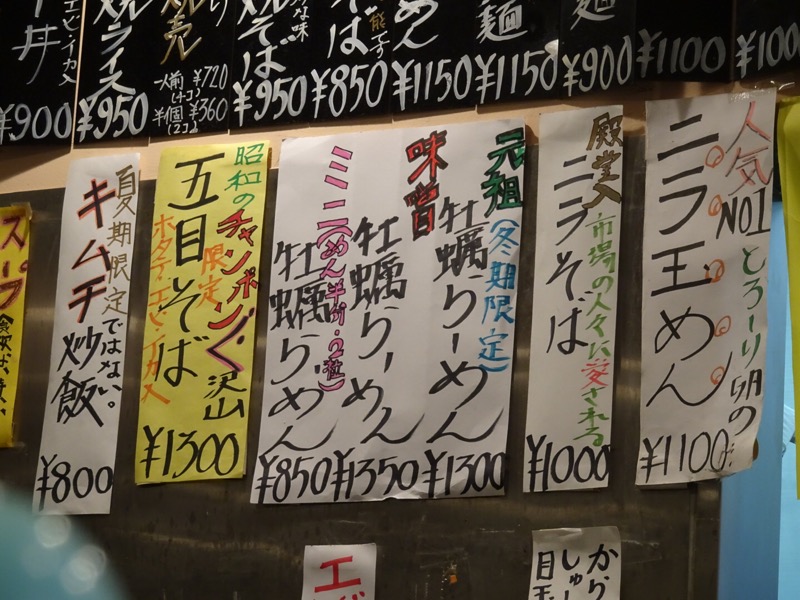 人気NO1
とろーり
ニラ玉めん
¥1100
殿堂入
市場の人々に愛される
ニラそば
¥1000
元祖
(冬期限定)
牡蠣らーめん
¥1300
味噌
牡蠣らーめん
¥1350
ミニ(めん半分・
牡蠣らーめん
¥850
昭和の
チャンポン
沢山
限定
五目そば
ホタテ・エビ・イカ入
¥1300
夏期限定ではない。
キムチ炒飯
¥800
スープ
¥100
¥1100
¥900
麺
¥1150
めん
¥1150
そば
¥850
そば
¥950
一人前 ¥720
半個 ¥360
(2コ)
ライス
¥950
エビ・イカ入
丼
¥900
から
しゅー
目玉
エビ